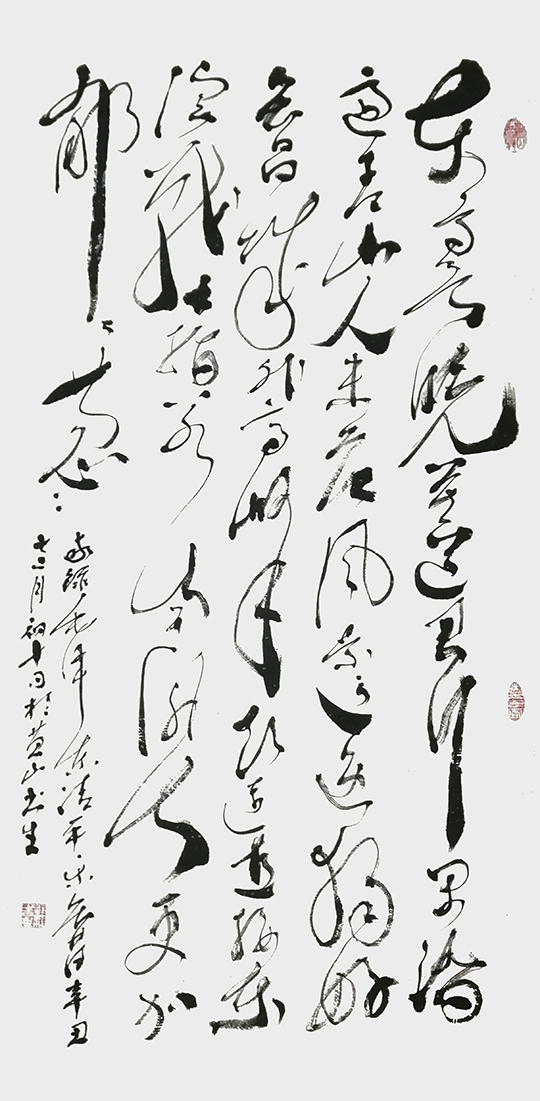 东方欲晓莫道君行早踏
遍青山人未老风景这边独好
会昌城外高峰颠连直接东
溟战士指看南粤更加
郁々葱々
录毛泽东清平乐会昌辛丑
二月初十日於黄山